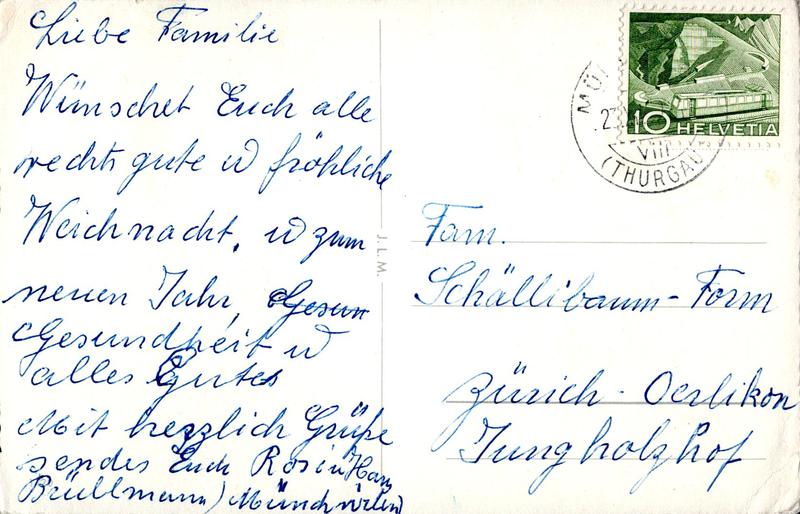 Liebe Familie
Wünschet Euch alle
rechts gute u fröhliche
Weichnacht. u zum
neuen Jahr, Gesun
Gesundheit u
alles Gutes
Mit herzlich Grüße
sendes Euch Rosi u Hans
Brüllmann) Münchwilen
J.L.M.
10 HELVETIA
MÜ
2
VIII
(THURGAU
Fam.
Schällibaum-Form
Zürich-Oerlikon
Jungholzhof